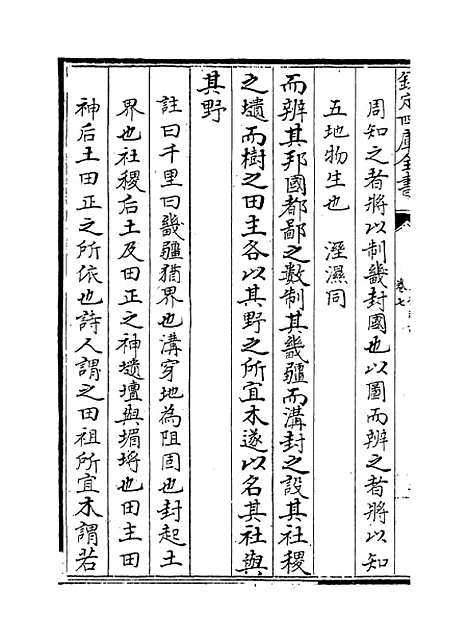 欽定四庫全書
卷七
周知之者將以制畿封國也以圖而辨之者將以知
五地物生也　溼濕同
而辨其邦國都鄙之數制其畿疆而溝封之設其社稷
之壝而樹之田主各以其野之所宜木遂以名其社與
其野
註曰千里曰畿疆猶界也溝穿地為阻固也封起土
界也社稷后土及田正之神壝壇與堳埒也田主田
神后土田正之所依也詩人謂之田祖所宜木謂若